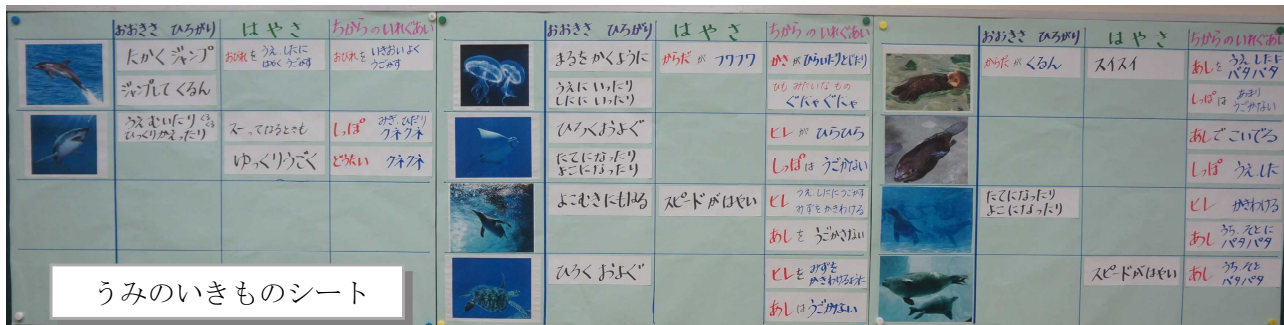 おおきさ ひろがり
はやさ
ちからのいれぐあい
たかくジャンプ
おびれを うえ、したに
はやく うごかす
おびれを いきおいよく
うごかす
ジャンプして くるん
うえむいたり ぐるぐる
ひっくりかえったり
スーってなるときも
しっぽ みぎ、ひだり
クネクネ
ゆっくりうごく
どうたい クネクネ
うみのいきものシート
おおきさ ひろがり
はやさ
ちからのいれぐあい
まるを かくように
からだ が フワフワ
かさ が ひらいたりとじたり
うえに いったり
したに いったり
ひも みたいな もの
ぐにゃぐにゃ
ひろくおよぐ
ヒレ が ひらひら
たてになったり
よこになったり
しっぽは うごかない
よこむきにもなる
スピードがはやい
ヒレ うえ、したにうごかす
みずをかきわける
あしを うごかさない
ひろく およぐ
ヒレを みずを
かきわけるように
あしは うごかない
おおきさ ひろがり
はやさ
ちからのいれぐあい
からだ が くるん
スイスイ
あしを うえ、したに
パタパタ
しっぽは あまり
うごかない
あしで こいでる
しっぽ うえ、した
たてになったり
よこになったり
ヒレ かきわける
あし うち、そとに
パタパタ
スピードがはやい
あし うち、そと
パタパタ